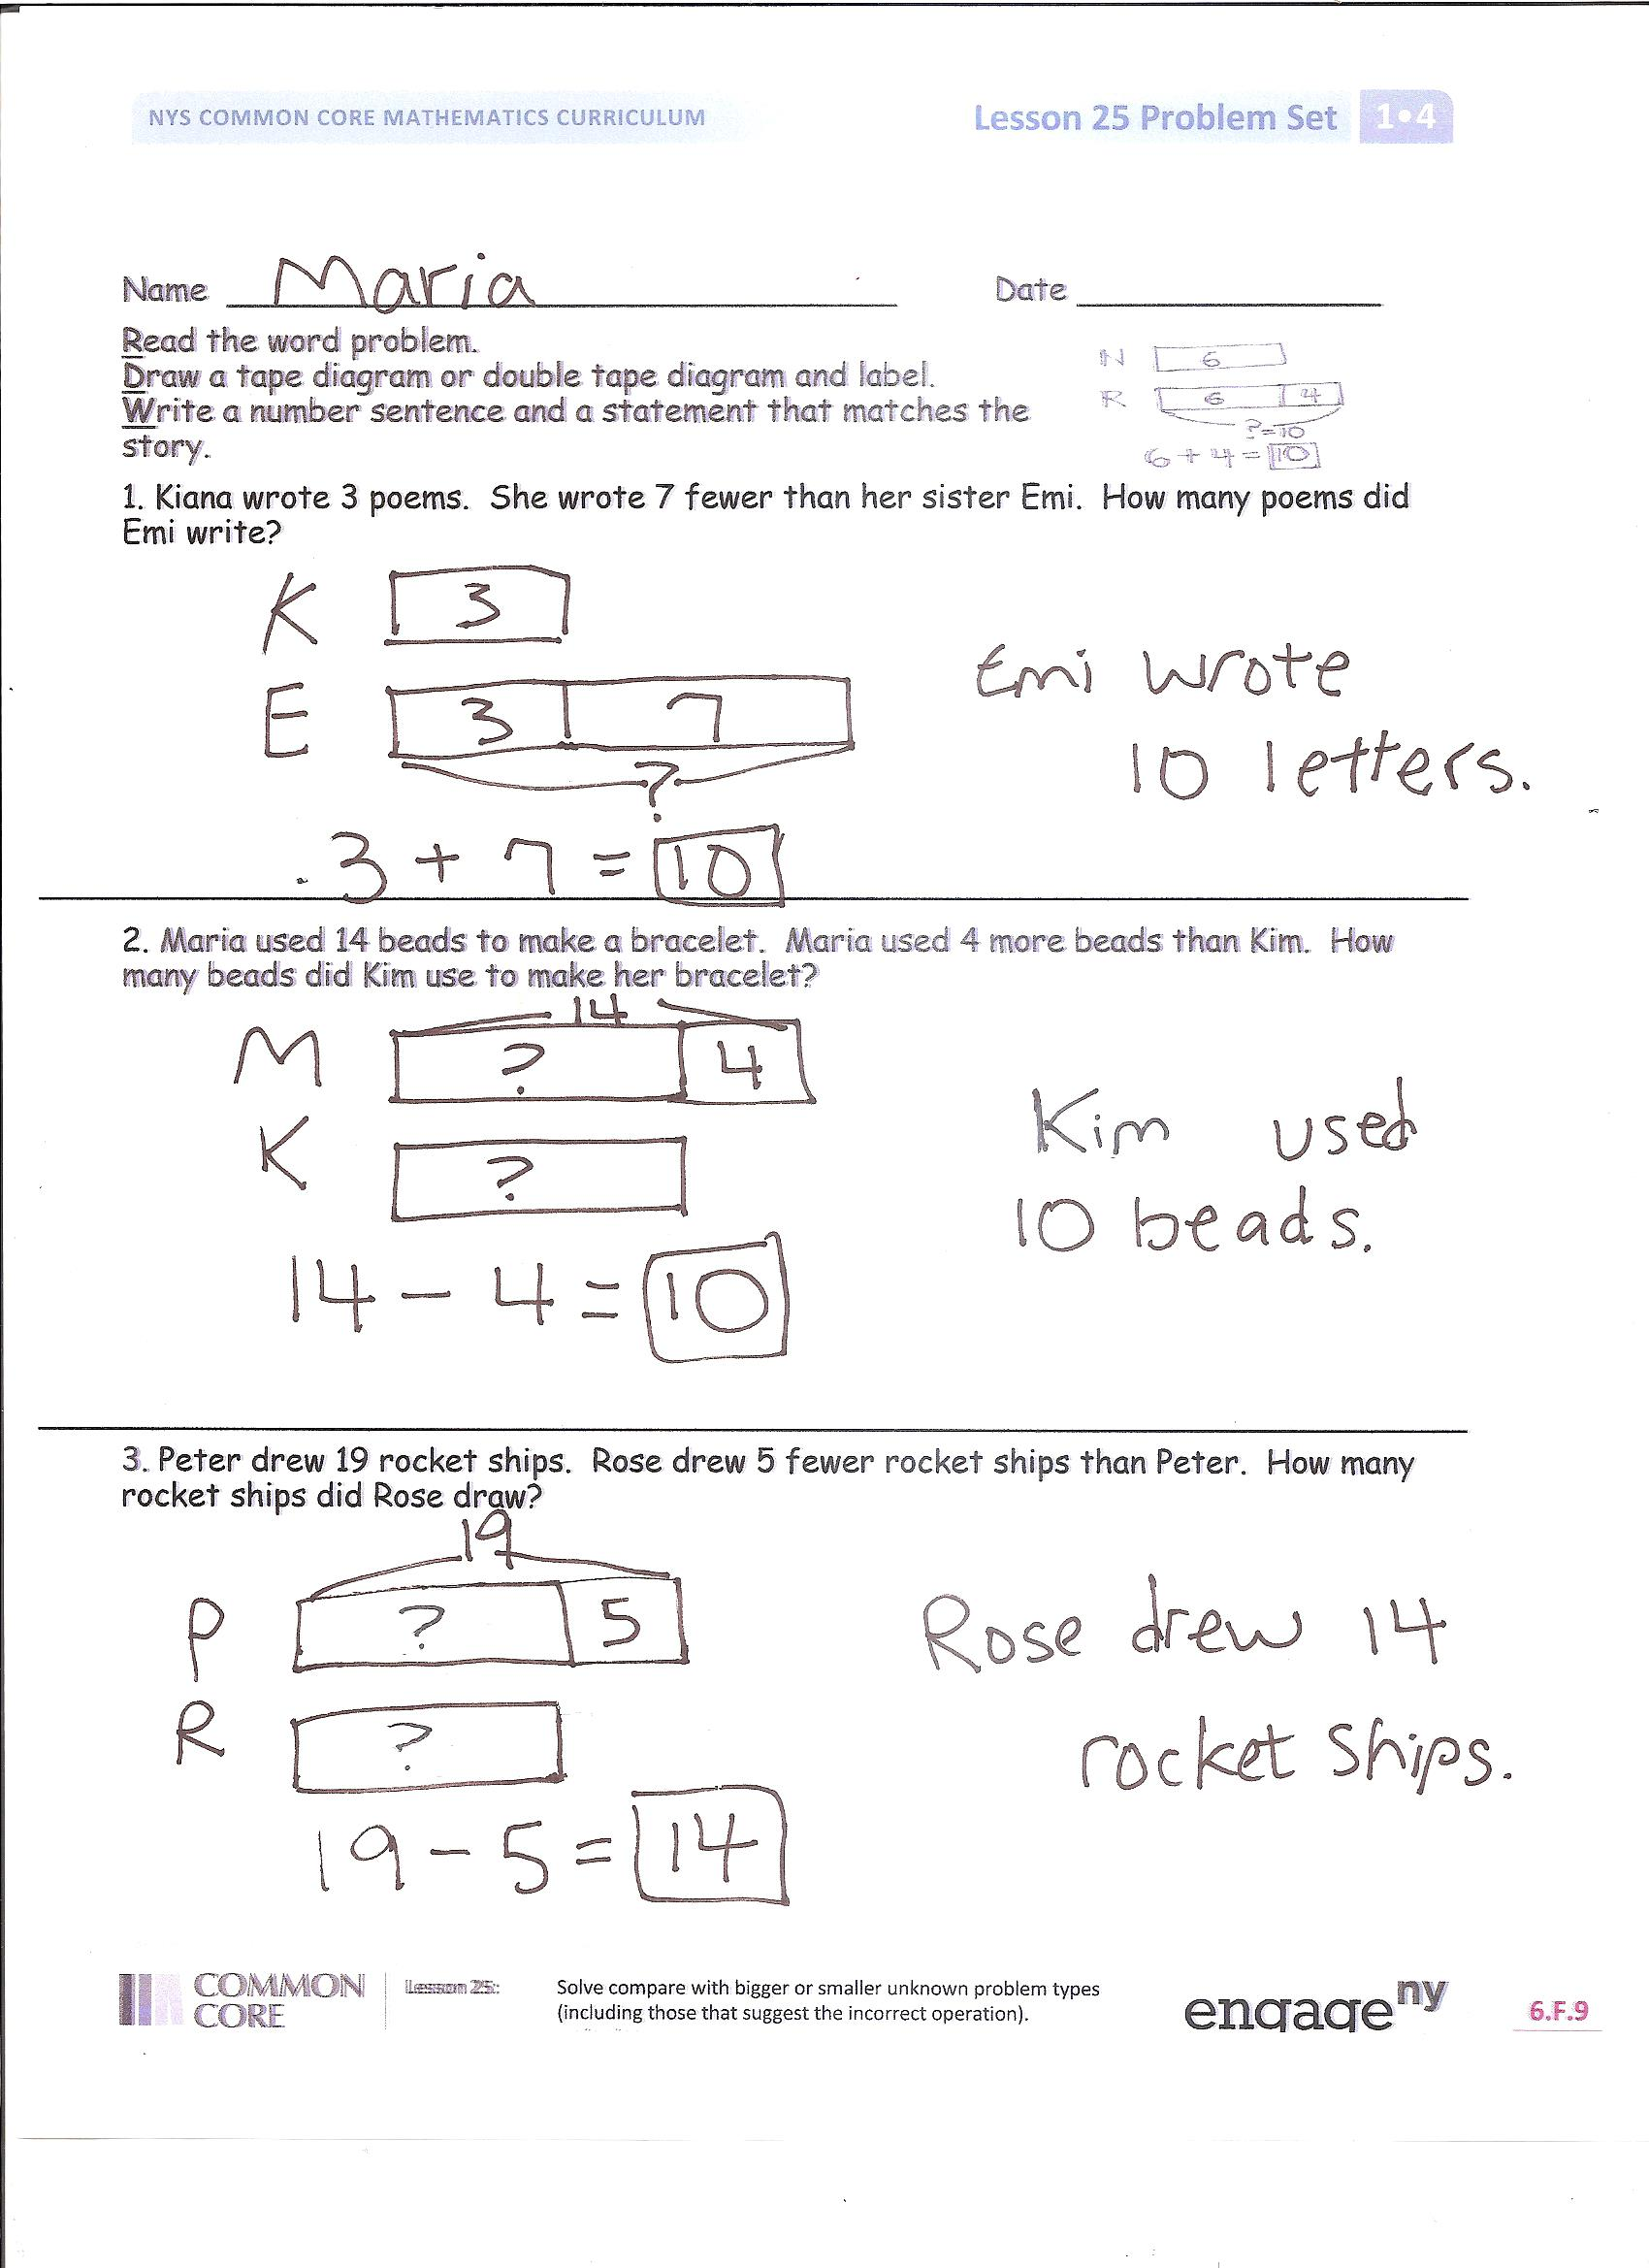 NYS COMMON CORE MATHEMATICS CURRICULUM
Lesson 25 Problem Set 1•4
Name Maria Date
Read the word problem.
Draw a tape diagram or double tape diagram and label.
Write a number sentence and a statement that matches the
story.
N 6
R 6 4
?=10
6 + 4 = 10
1. Kiana wrote 3 poems. She wrote 7 fewer than her sister Emi. How many poems did
Emi write?
K 3
E 3 7
?
3 + 7 = 10
Emi wrote
10 letters.
2. Maria used 14 beads to make a bracelet. Maria used 4 more beads than Kim. How
many beads did Kim use to make her bracelet?
14
M ? 4
K ?
14 - 4 = 10
Kim used
10 beads.
3. Peter drew 19 rocket ships. Rose drew 5 fewer rocket ships than Peter. How many
rocket ships did Rose draw?
19
P ? 5
R ?
19 - 5 = 14
Rose drew 14
rocket ships.
COMMON
CORE
Lesson 25:
Solve compare with bigger or smaller unknown problem types
(including those that suggest the incorrect operation).
engage ny
6.F.9